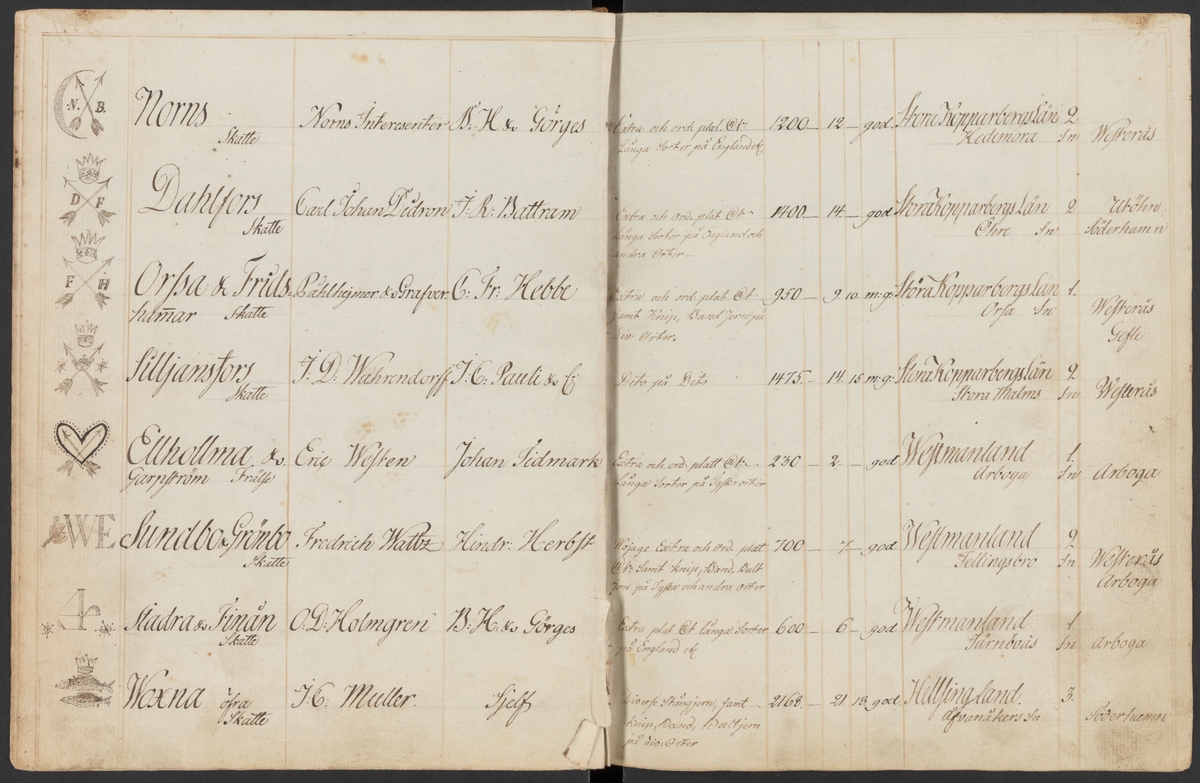 N. B. Norns Norns Interesenter B. H. & Görges Extra och ord. plat. Ct. 1200 — 12 — god. Stora Kopparbergs Län 2
Skatte Långa Sorter på England &c Hedemora Sn Westerås
D F Dahlfors Carl Johan Didron J. R. Battram Extra och ord. plat. Ct. 1400 — 14 — god Stora Kopparbergs Län 2 Utöhn
Skatte Långa Sorter på England och Ohre Sn Söderhamn
andra Orter —
F H Orsa & Frids- Påhlhejmer & Grafver C. Fr: Hebbe Extra och ord. plat. Ct. 950 — 9 10 m:g: Stora Kopparbergs Län 1.
hamar Skatte samt Knip, Band Jern på Orsa Sn Westerås
div. Orter. Gefle
Silljansfors J. D. Wahrendorff J. C. Pauli & C: Dito på Dito 1475 — 14 15 m:g: Stora Kopparbergs Län 2
Skatte Stora Thalms Sn Westerås
Ellhollma & Eric Westen Johan Tidmark Extra och ord. platt Ct. 230 — 2 — god Westmanland 1.
Garpström Frälse Långa Sorter på Tyska orter Arboga Sn Arboga
WE Sundbo & Grönbo Fredrich Waltz Hindr: Herbst Wåjage Extra och Ord. platt 700 — 7 — god Westmanland 2
Skatte Ct. Samt Knip, Band, Bult Fellingsbro Sn Westerås
Jern på Tyska och andra orter Arboga
Stadra & Finån O. D. Holmgren B. H. & Görges Extra plat Ct långa Sorter 600 — 6 — god Westmanland 1.
Skatte på England &c Järnboås Sn Arboga
Woxna öfra J. C. Muller. Sjelf Diverse Stångjern, samt 2168 — 21 18 god Hellsingland. 3.
Skatte Knip, Band, Bultjern Åfvanåkers Sn Söderhamn
på div. Orter